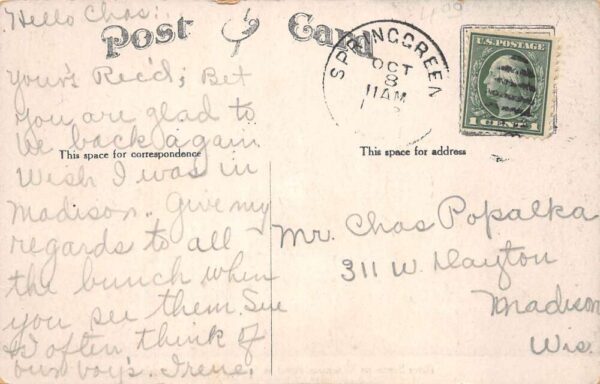 Hello Chas:
Post Card
Your's Rec'd; Bet
you are glad to
be back again
Wish I was in
Madison. Give my
regards to all
the bunch when
you see them. Sue
& I often think of
our boys. Irene.
This space for correspondence
This space for address
SPRING GREEN
OCT
8
11AM
U.S. POSTAGE
1 CENT 1
Mr. Chas Popalka
311 W. Dayton
Madison
Wis.